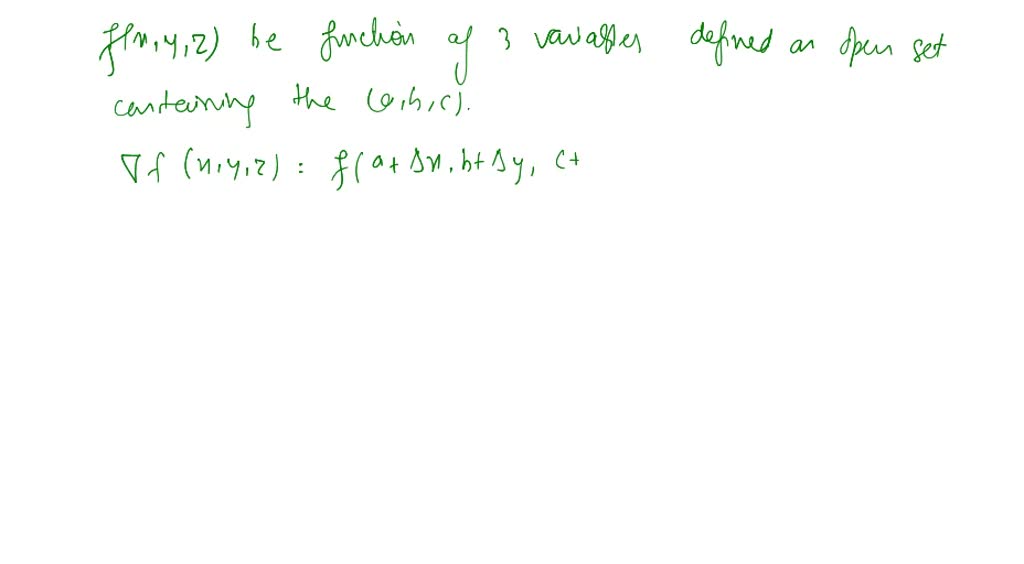 f(x,y,z) be function of 3 variables defined on open set
containing the (a,b,c).
∇f (x,y,z) = f(a+Δx, b+Δy, c+